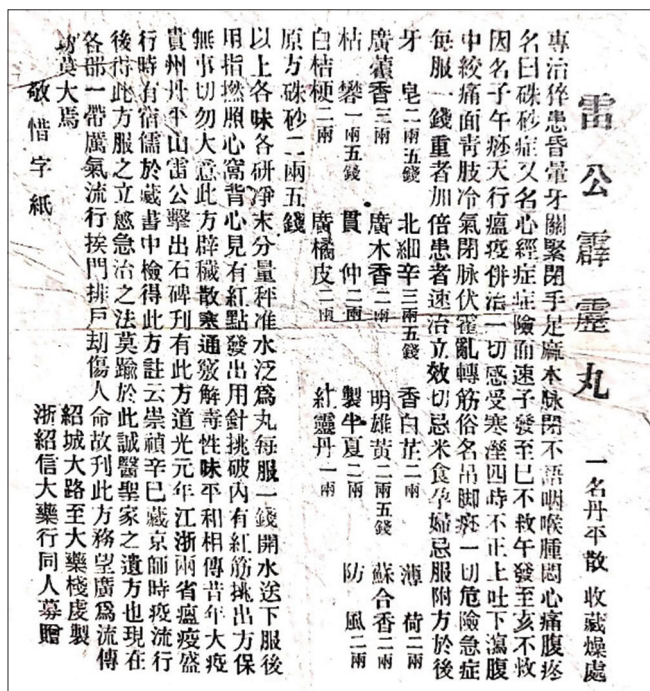 雷公霹靂丸
一名丹平散　收藏燥處
專治猝患昏暈牙關緊閉手足麻木脉閉不語咽喉腫悶心痛腹疼
名曰硃砂症又名心經症症險而速子發至巳不救午發至亥不救
因名子午痧天行瘟疫併治一切感受寒溼四時不正上吐下瀉腹
中絞痛面青肢冷氣閉脉伏霍亂轉筋俗名吊脚痧一切危險急症
每服一錢重者加倍患者速治立效切忌米食孕婦忌服附方於後
牙皂二兩五錢　北細辛三兩五錢　香白芷二兩　薄荷二兩
廣藿香三兩　廣木香二兩　明雄黃二兩五錢　蘇合香二兩
枯礬一兩五錢　貫仲二兩　製半夏二兩　防風二兩
白桔梗二兩　廣橘皮二兩　紅靈丹一兩
原方硃砂二兩五錢
以上各味各研淨末分量秤准水泛爲丸每服一錢開水送下服後
用指撚照心窩背心見有紅點發出用針挑破內有紅筋挑出方保
無事切勿大意此方辟穢散寒通竅解毒性味平和相傳昔年大疫
貴州丹平山雷公擊出石碑刋有此方道光元年江浙兩省瘟疫盛
行時有宿儒於藏書中檢得此方註云崇禎辛巳藏京師時疫流行
後得此方服之立愈急治之法莫踰於此誠醫聖家之遺方也現在
各邵一帶厲氣流行挨門排戶刧傷人命故刋此方務望廣爲流傳
功莫大焉
紹城大路至大藥棧虔製
敬惜字紙
浙紹信大藥行同人募贈